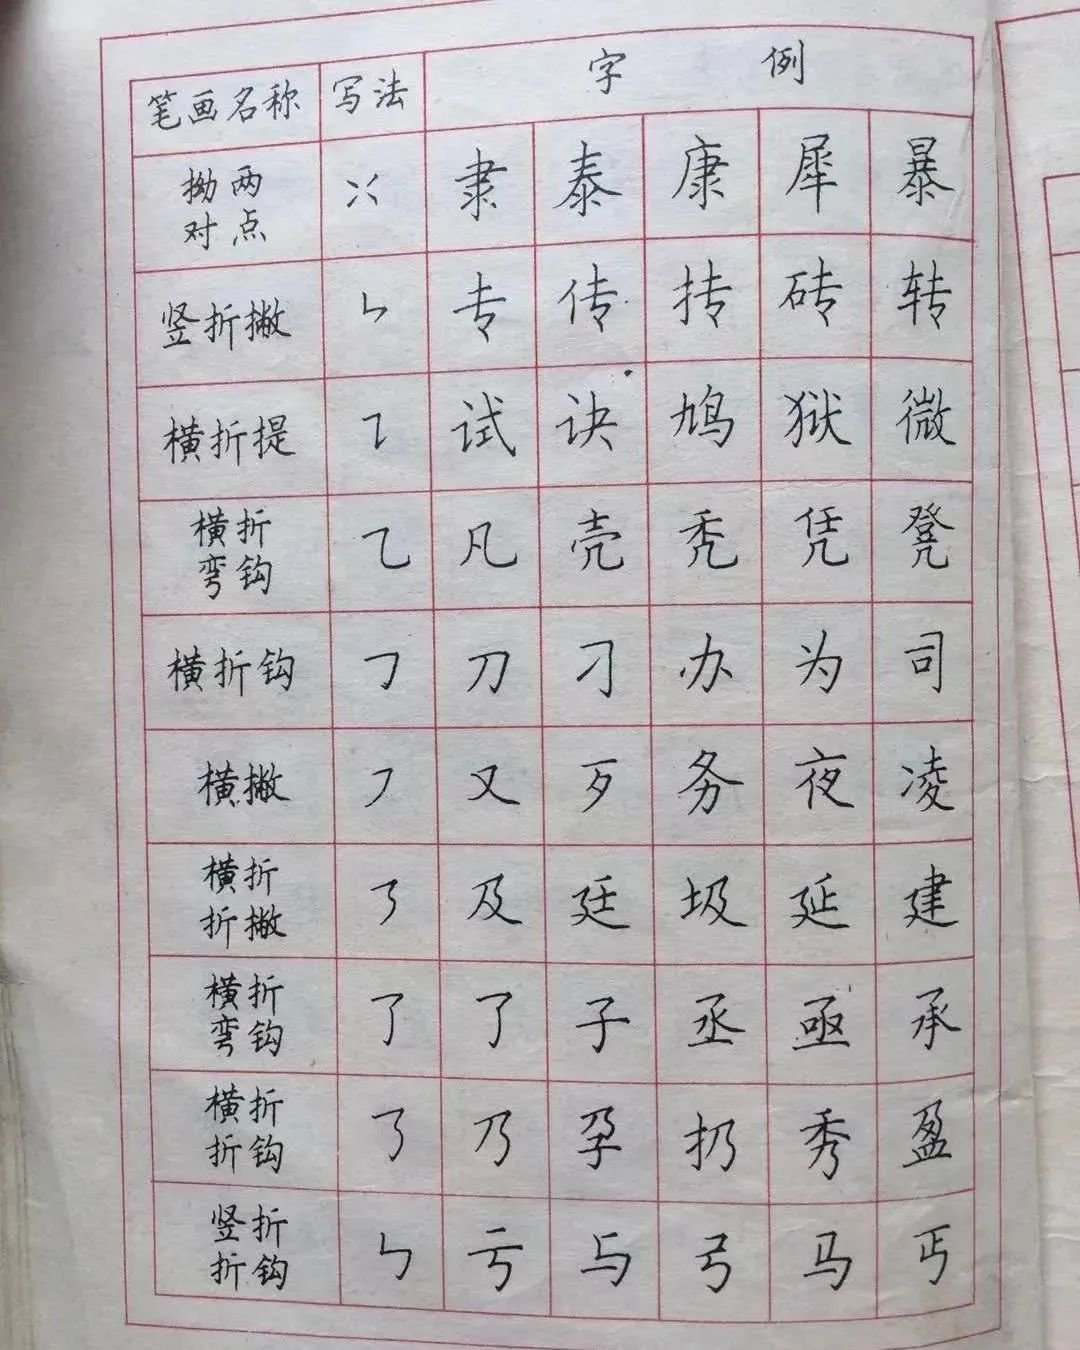 笔画名称 写法 字 例
拗两
对点 隶 泰 康 犀 暴
竖折撇 ㄣ 专 传 抟 砖 转
横折提 ㇊ 试 诀 鸠 狱 微
横折
弯钩 ㇈ 凡 壳 秃 凭 凳
横折钩 ㇆ 刀 刁 办 为 司
横撇 ㇇ 又 歹 务 夜 凌
横折
折撇 ㇋ 及 廷 圾 延 建
横折
弯钩 了 了 子 丞 亟 承
横折
折钩 ㇡ 乃 孕 扔 秀 盈
竖折
折钩 ㇉ 亏 与 弓 马 丐